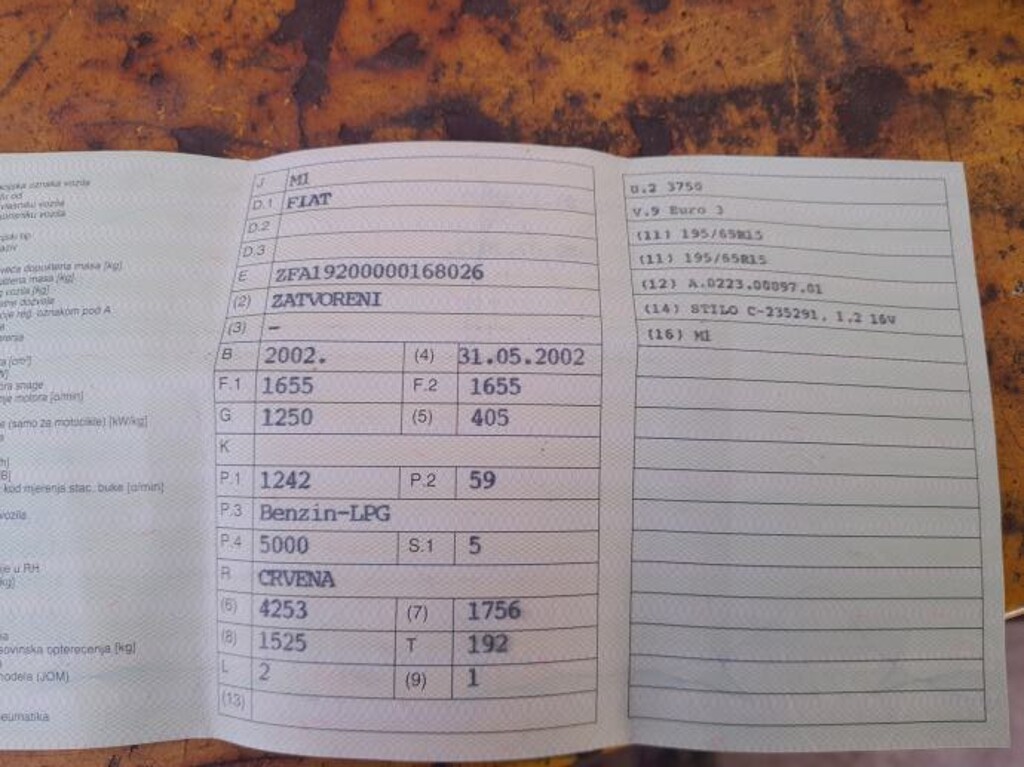 oznaka vozila
od
vlasniku vozila
korisniku vozila
tip
dopuštena masa [kg]
masa [kg]
vozila [kg]
dozvole
reg. oznakom pod A
[cm³]
snage
motora [o/min]
(samo za motocikle) [kW/kg]
kod mjerenja stac. buke [o/min]
vozila
u RH
kg]
osovinska opterećenja [kg]
modela (JOM)
J MI
D.1 FIAT
D.2
D.3
E ZFA19200000168026
(2) ZATVORENI
(3) –
B 2002. (4) 31.05.2002
F.1 1655 F.2 1655
G 1250 (5) 405
K
P.1 1242 P.2 59
P.3 Benzin-LPG
P.4 5000 S.1 5
R CRVENA
(6) 4253 (7) 1756
(8) 1525 T 192
L 2 (9) 1
(13)
U.2 3750
V.9 Euro 3
(11) 195/65R15
(11) 195/65R15
(12) A.0223.00097.01
(14) STILO C-235291, 1.2 16V
(16) MI